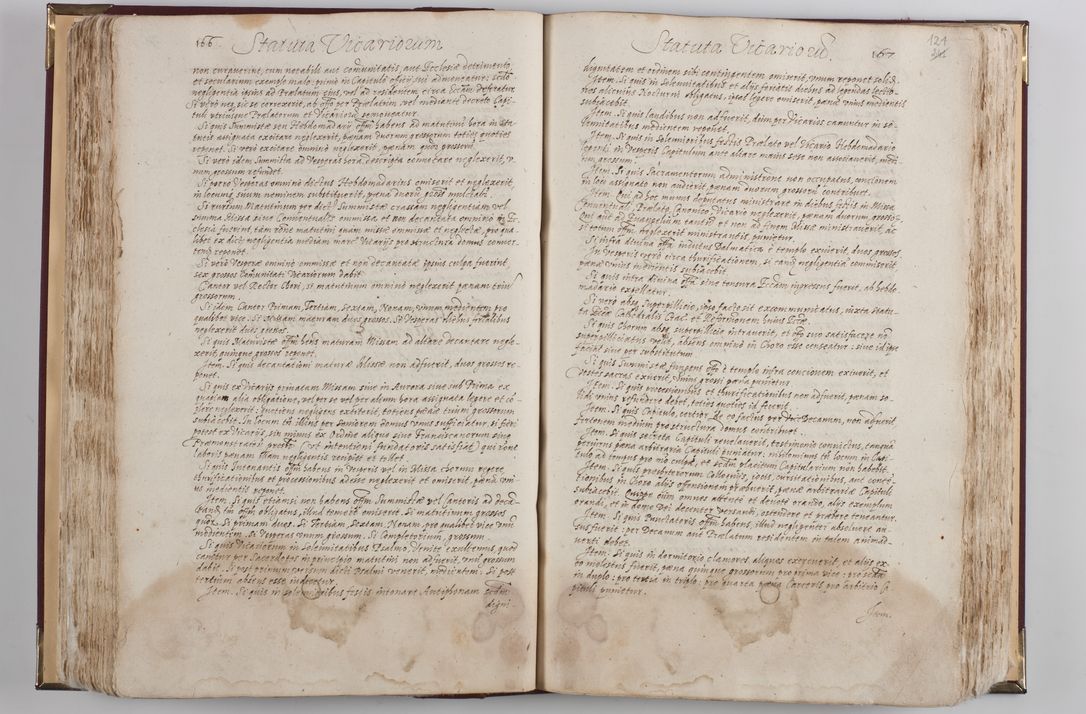 166. Statuta Vicariorum
non curaverint, cum notabili aut comunitatis, aut Ecclesiæ detrimento,
et secularium exemplo malo: primo in Capitulo officij sui admoneatur: secūdo
negligentia ipsius ad Prælatum eius, vel ad residentem circa Eccām deferatur
Si verò nec sic se correxerit, ab offo per Prælatum, vel mediante decreto Capi-
tuli utriusque Prælatorum et Vicariorū removeatur.
Si quis Summistæ seu Hebdomadarij offm habens ad matutinū hora in sta-
tutis assignata excitare neglexerit, pœnam duorum grossorum toties quoties
reponet. Si verò excitare omnino neglexerit, pœnam quos grossorū.
Si verò idem Summista ad Vesperas hora descripta compulsare neglexerit, v-
num grossum refundet.
Si porro Vesperas omnino dictus Hebdomadarius omiserit et neglexerit,
in locumq; suum neminem substituerit, pœna duorū gross. mulctabit.
Si rursum Matutinum per dict. Summistæ crassam negligentiam vel
summa Missa sive Conventualis omissa et non decantata omnino in Ec-
clesia fuerint, tam rōne matutini quam missæ omissæ et neglectæ, pro qua-
libet ex dict. negligentia mediam marc. Vicarijs pro structura domus conver-
tend. reponet.
Si verò Vesperæ omnino omissæ et non decantatæ ipsius culpa fuerint,
sex grossos Comunitati Vicariorum dabit.
Cantor vel Rector Chori, si matutinum omnino neglexerit pœnam triū
grossorum.
Si idem Cantor Primam, Tertiam, Sextam, Nonam, unum medientem pro
qualibet vice. Si Missam maturam duos grossos. Si Vesperas diebus ferialibus
neglexerit duos grossos.
Si quis Maturistæ offm hens maturam Missam ad altare decantare negle-
xerit, quinque grossos reponet.
Item. Si quis decantationi maturæ Missæ non adfuerit, duos grossos re-
ponet.
Si quis ex Vicarijs privatam Missam sive in Aurora sive sub Prima ex
quapiam alia obligatione, vel per se vel per alium hora assignata legere et co-
plere neglexerit: quotiens negligens extiterit, totiens pœnæ trium grossorum
subiacebit. In locum tn illius per seniorem domus unus sufficiatur, si fieri
potest ex Vicarijs, sin minus ex Ordine aliquo sive Franciscanorum sive
Præmonstraten. presbr. (ut intentioni fundatoris satisfiat) qui rone
laboris pœnam illam negligentis recipiet et tollet.
Si quis Intonantis offm habens in Vesperis vel in Missa chorum regere
thurificationibus et processionibus adesse neglexerit et omiserit, pœna uni-
us medientis reponet.
Item. Si quis etiamsi non habens offm Summistæ vel Cantoris ad decā-
tand. tn offm obligatus, illud temerè omiserit. Si matutinum grossos
quos. Si primam duos. Si Tertiam, Sextam, Nonam, pro qualibet vice unū
medientem. Si Vesperas unum grossum. Si Completorium, grossum.
Si quis Vicariorum in solemnitatibus Psalmo, Venite exultemus, quod
canitur per Sacerdotes in principio matutini non adfuerit, unū grossum
dabit. Si post primum versum dicti Psalmi venerit, medientem. Si post
tertium absens esse indicetur.
Item. Si quis in solemnibus festis intonare Antiphonam scdm
digni-
Statuta Vicariorū. 167
124
dignitatem et ordinem sibi contingentem omiserit, unum reponet solidū.
Item. Si quis in solemnitatibus et alijs foriatis diebus ad legendas lectio-
nes alicuius Nocturni obligatus, ipsas legere omiserit, pœnæ unius medientis
subiacebit.
Item. Si quis laudibus non adfuerit, dum per Vicarios canuntur in so-
lemnitatibus medientem reponet.
Item. Si quis in solemnioribus festis Prælato vel Vicario Hebdomadario
legendi in Vesperis Capitulum ante altare maius sese non associaverit, medi-
um grossum.
Item. Si quis Sacramentorum administrōne non occupatus, concionem
in loco assignato non audierit pœnam duorum grossorū contribuet.
Item. Qui ad hoc munus deputatus ministrare in diebus festis in Missa
Conventuali Prælato Canonico Vicario neglexerit, pœnam duorum grosso.
Qui aut ad Evangelium tantūd et non ad finem Missæ ministraverit, ac
si totum offm neglexerit ministrantis punietur.
Si infra divina offa indutus Dalmatica è templo exiverit, duos grosses.
In Vesperis verò circa thurificationem, si eand negligentiā commiserit
pœnæ unius medientis subiacebit.
Si quis infra divina offa sine tonsura Eccām ingressus fuerit, ab hebdo-
madario expelletur.
Si verò absq; superpellicio, ipso facto sit excommunicatus, iuxta statu-
ta Ecclæ Cathedralis Crac. et Reformationem huius Ecclæ.
Si quis Chorum absq; superpellicio intraverit, et offo suo satisfacere nō
superpelliciatus velit, absens omnino in Choro esse censeatur: sive id ipse
faciat sive per substitutum.
Si quis Summistæ fungens offo è templo infra concionem exiverit, et
vestes sacras exuerit, unius grossi pœna punietur.
Item. Si quis processionibus et thurificationibus non adfuerit, pœnam so-
lidi unius refundere debet, toties quoties id fecerit.
Item. Si quis Capitulo, certior de eo factus per Decanum, non adfuerit,
fertonem medium pro structura domus contribuet.
Item. Si quis secreta Capituli revelaverit, testimonio convictus, carceris
gravioris pœna arbitraria Capituli punietur, nihilominus tn locum in Capi-
tulo ad tempus pro mō culpæ, et eodem placitum Capitularium non habebit.
Item. Si quis presbyterorum Colloquijs, iocis, cursitationibus, aut conte-
tionibus in Choro alijs offensionem præbuerit, pœnæ arbitrariæ Capituli
subiacebit. Quippe cum omnes attentè et devotè orando, alijs exemplum
orandi, et in domo Dei decenter versandi, ostendere et præbere teneantur.
Item. Si quis Punctatoris offm habens, illud negligenter absoluere au-
sus fuerit: per Decanum aut Prælatum residentem in talem animad-
verti debet.
Item. Si quis in dormitorio clamores aliquos exercuerit, et alijs ex-
to molestus fuerit, pœna quinque grossorum pro prima vice: pro scda
in duplo: pro tertia in triplo: pro quarta pœna Carceris pro arbitrio Ca-
pituli punietur.
Item.